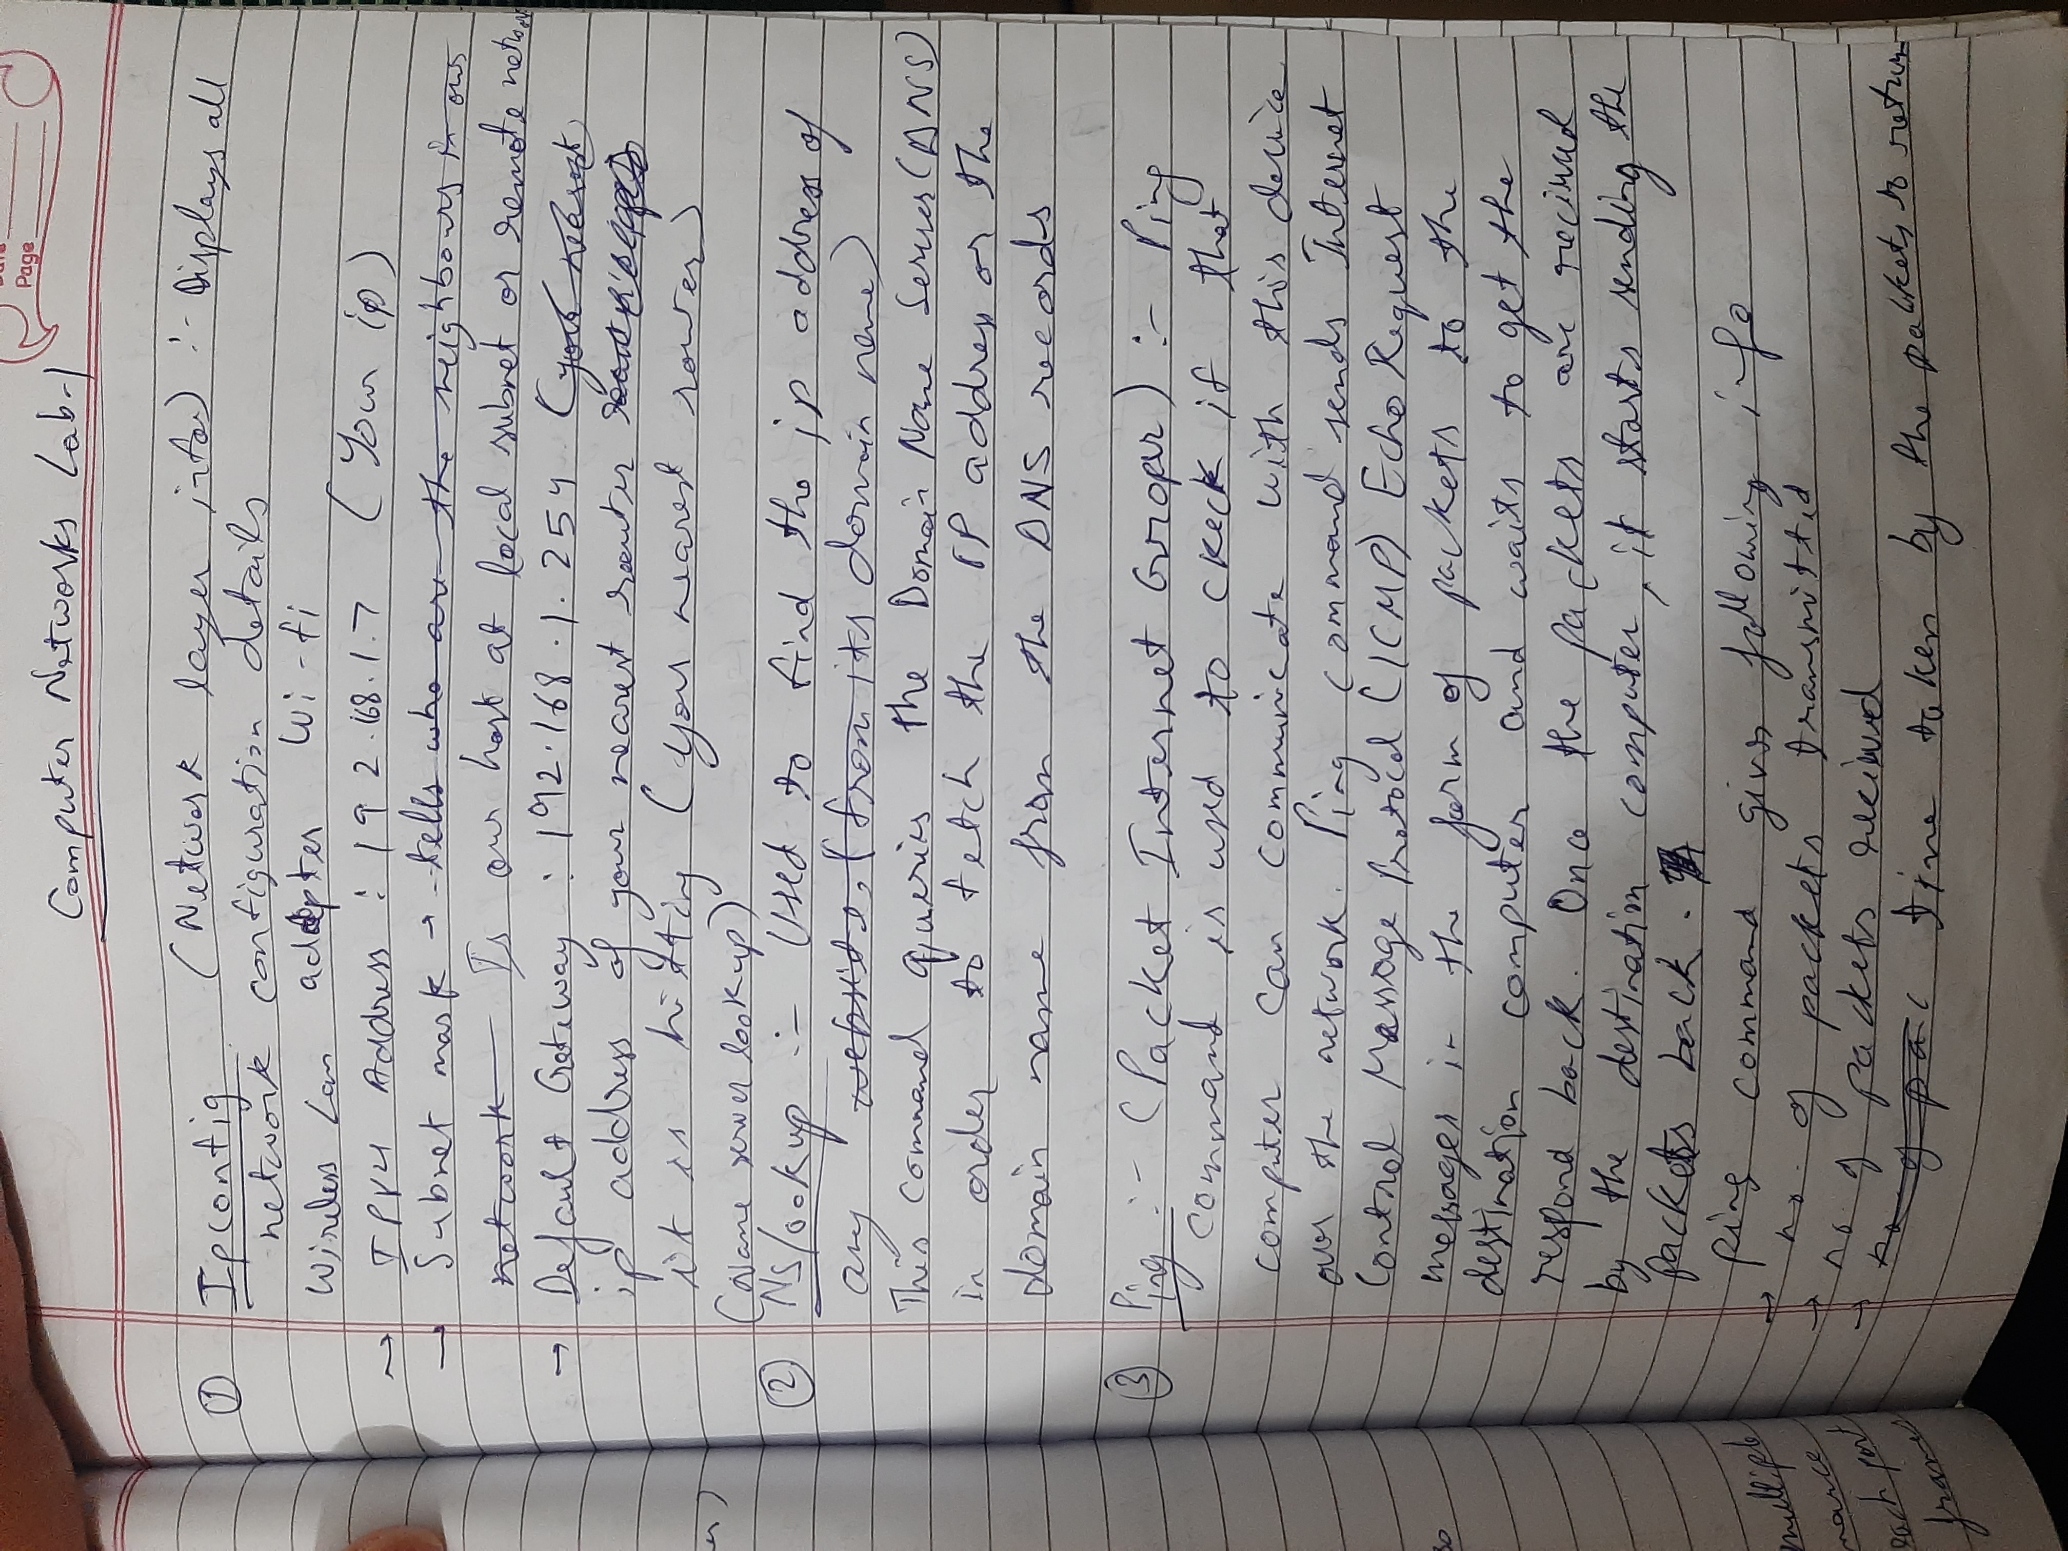 Date
Page
Computer Networks Lab-1
① Ipconfig (Network layer info) :- Displays all
network configuration details
Wireless Lan adapter Wi-fi
→ IPV4 Address : 192.168.1.7 (Your ip)
→ Subnet mask → tells who are the neighbours in our
network Is our host at local subnet or remote network
→ Default Gateway : 192.168.1.254 (your nearest
ip address of your nearest router
it is hitting (your nearest router)
(Name server lookup)
② NSlookup :- Used to find the ip address of
any website, (from its domain name)
This command queries the Domain Name Server (DNS)
in order to fetch the IP address or the
domain name from the DNS records
③ Ping :- (Packet Internet Groper) :- Ping
command is used to ckeck if that
computer can communicate with this device
over the network. Ping command sends Internet
Control Message Protocol (ICMP) Echo Request
messages in the form of packets to the
destination computer and waits to get the
respond back. Once the packets are recieved
by the destination computer, it starts sending the
packets back.
ping command gives following info
→ no. of packets transmitted
→ no. of packets recieved
→ no of pac time taken by the packets to return
er)
so
multiple
mance
each port
frames